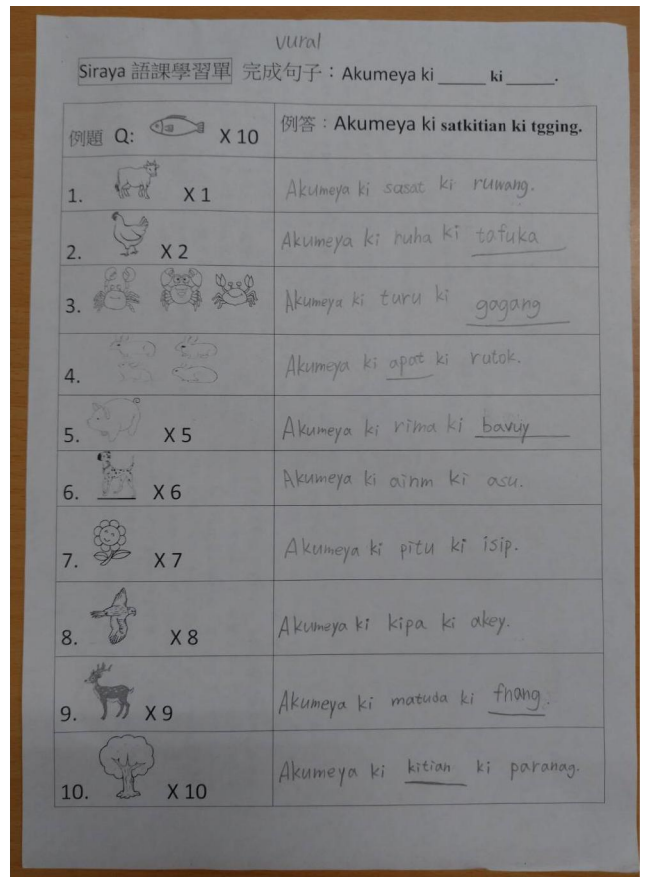 vural
Siraya 語課學習單 完成句子：Akumeya ki _____ ki _____.
例題 Q: X 10 例答：Akumeya ki satkitian ki tgging.
1. X 1 Akumeya ki sasat ki ruwang.
2. X 2 Akumeya ki ruha ki tafuka
3. Akumeya ki turu ki gagang
4. Akumeya ki apat ki rutok.
5. X 5 Akumeya ki rima ki bavuy
6. X 6 Akumeya ki ainm ki asu.
7. X 7 Akumeya ki pitu ki isip.
8. X 8 Akumeya ki kipa ki akey.
9. X 9 Akumeya ki matuda ki fnang.
10. X 10 Akumeya ki kitian ki paranag.